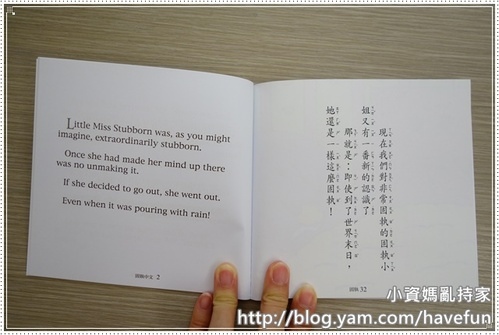 Little Miss Stubborn was, as you might
imagine, extraordinarily stubborn.
Once she had made her mind up there
was no unmaking it.
If she decided to go out, she went out.
Even when it was pouring with rain!
固執中文 2
現在我們對非常固執的固執小
姐又有一番新的認識了
那就是：即使到了世界末日，
她還是一樣這麼固執！
固執 32
小資媽亂持家
http://blog.yam.com/havefun